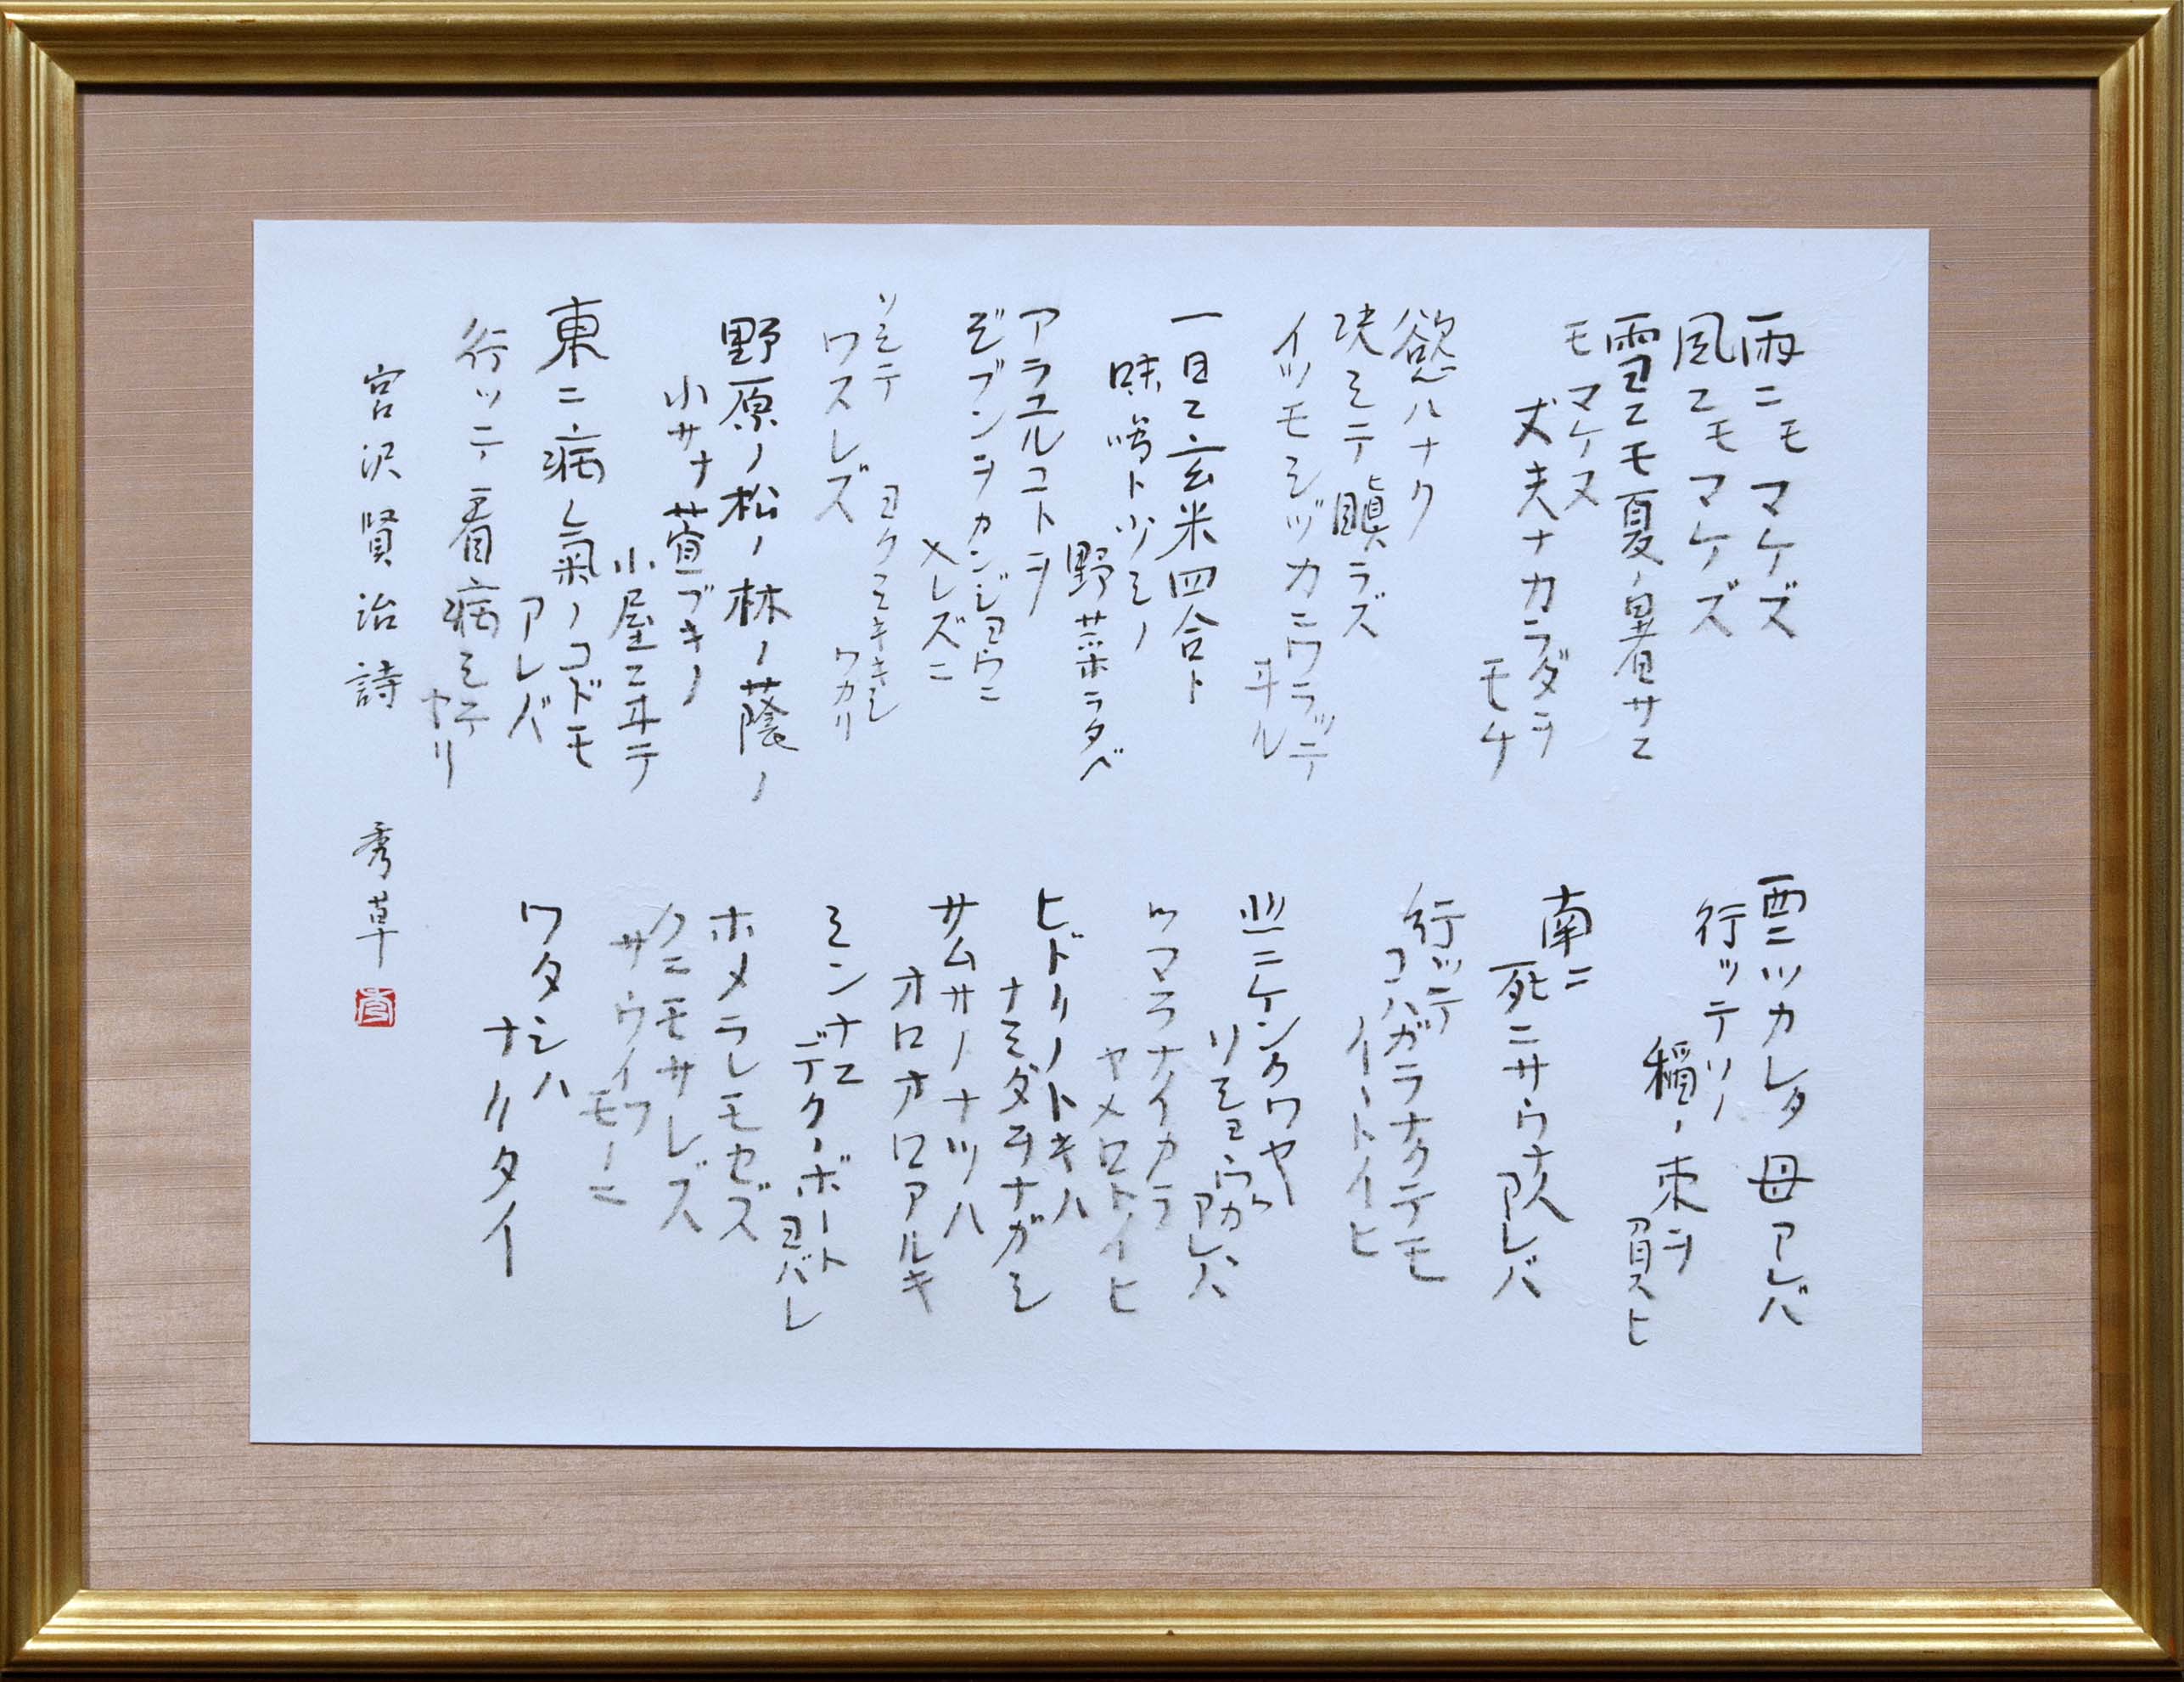 雨ニモマケズ
風ニモマケズ
雪ニモ夏ノ暑サニ
モマケヌ
丈夫ナカラダヲ
モチ
慾ハナク
決シテ瞋ラズ
イツモシヅカニワラッテ
ヰル
一日ニ玄米四合ト
味噌ト少シノ
野菜ヲタベ
アラユルコトヲ
ジブンヲカンジョウニ
入レズニ
ヨクミキキシ
ワカリ
ソシテ
ワスレズ
野原ノ松ノ林ノ蔭ノ
小サナ萓ブキノ
小屋ニヰテ
東ニ病氣ノコドモ
アレバ
行ッテ看病シテ
ヤリ
西ニツカレタ母アレバ
行ッテソノ
稲ノ束ヲ
負ヒ
南ニ
死ニサウナ人
アレバ
行ッテ
コハガラナクテモ
イヽトイヒ
北ニケンクワヤ
ソショウガ
アレバ
ツマラナイカラ
ヤメロトイヒ
ヒドリノトキハ
ナミダヲナガシ
サムサノナツハ
オロオロアルキ
ミンナニ
デクノボート
ヨバレ
ホメラレモセズ
クニモサレズ
サウイフ
モノニ
ワタシハ
ナリタイ
宮沢賢治詩 秀草